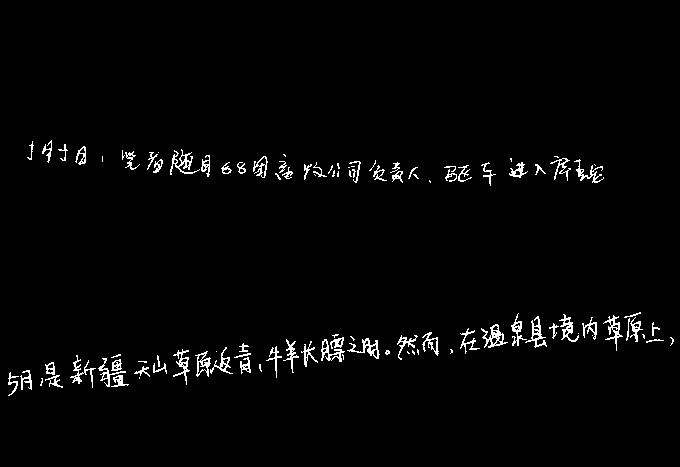 5月5日，笔者随同68团畜牧公司负责人、驱车进入库
5月是新疆天山草原返青、牛羊长膘之时。然而，在温泉县境内草原上，